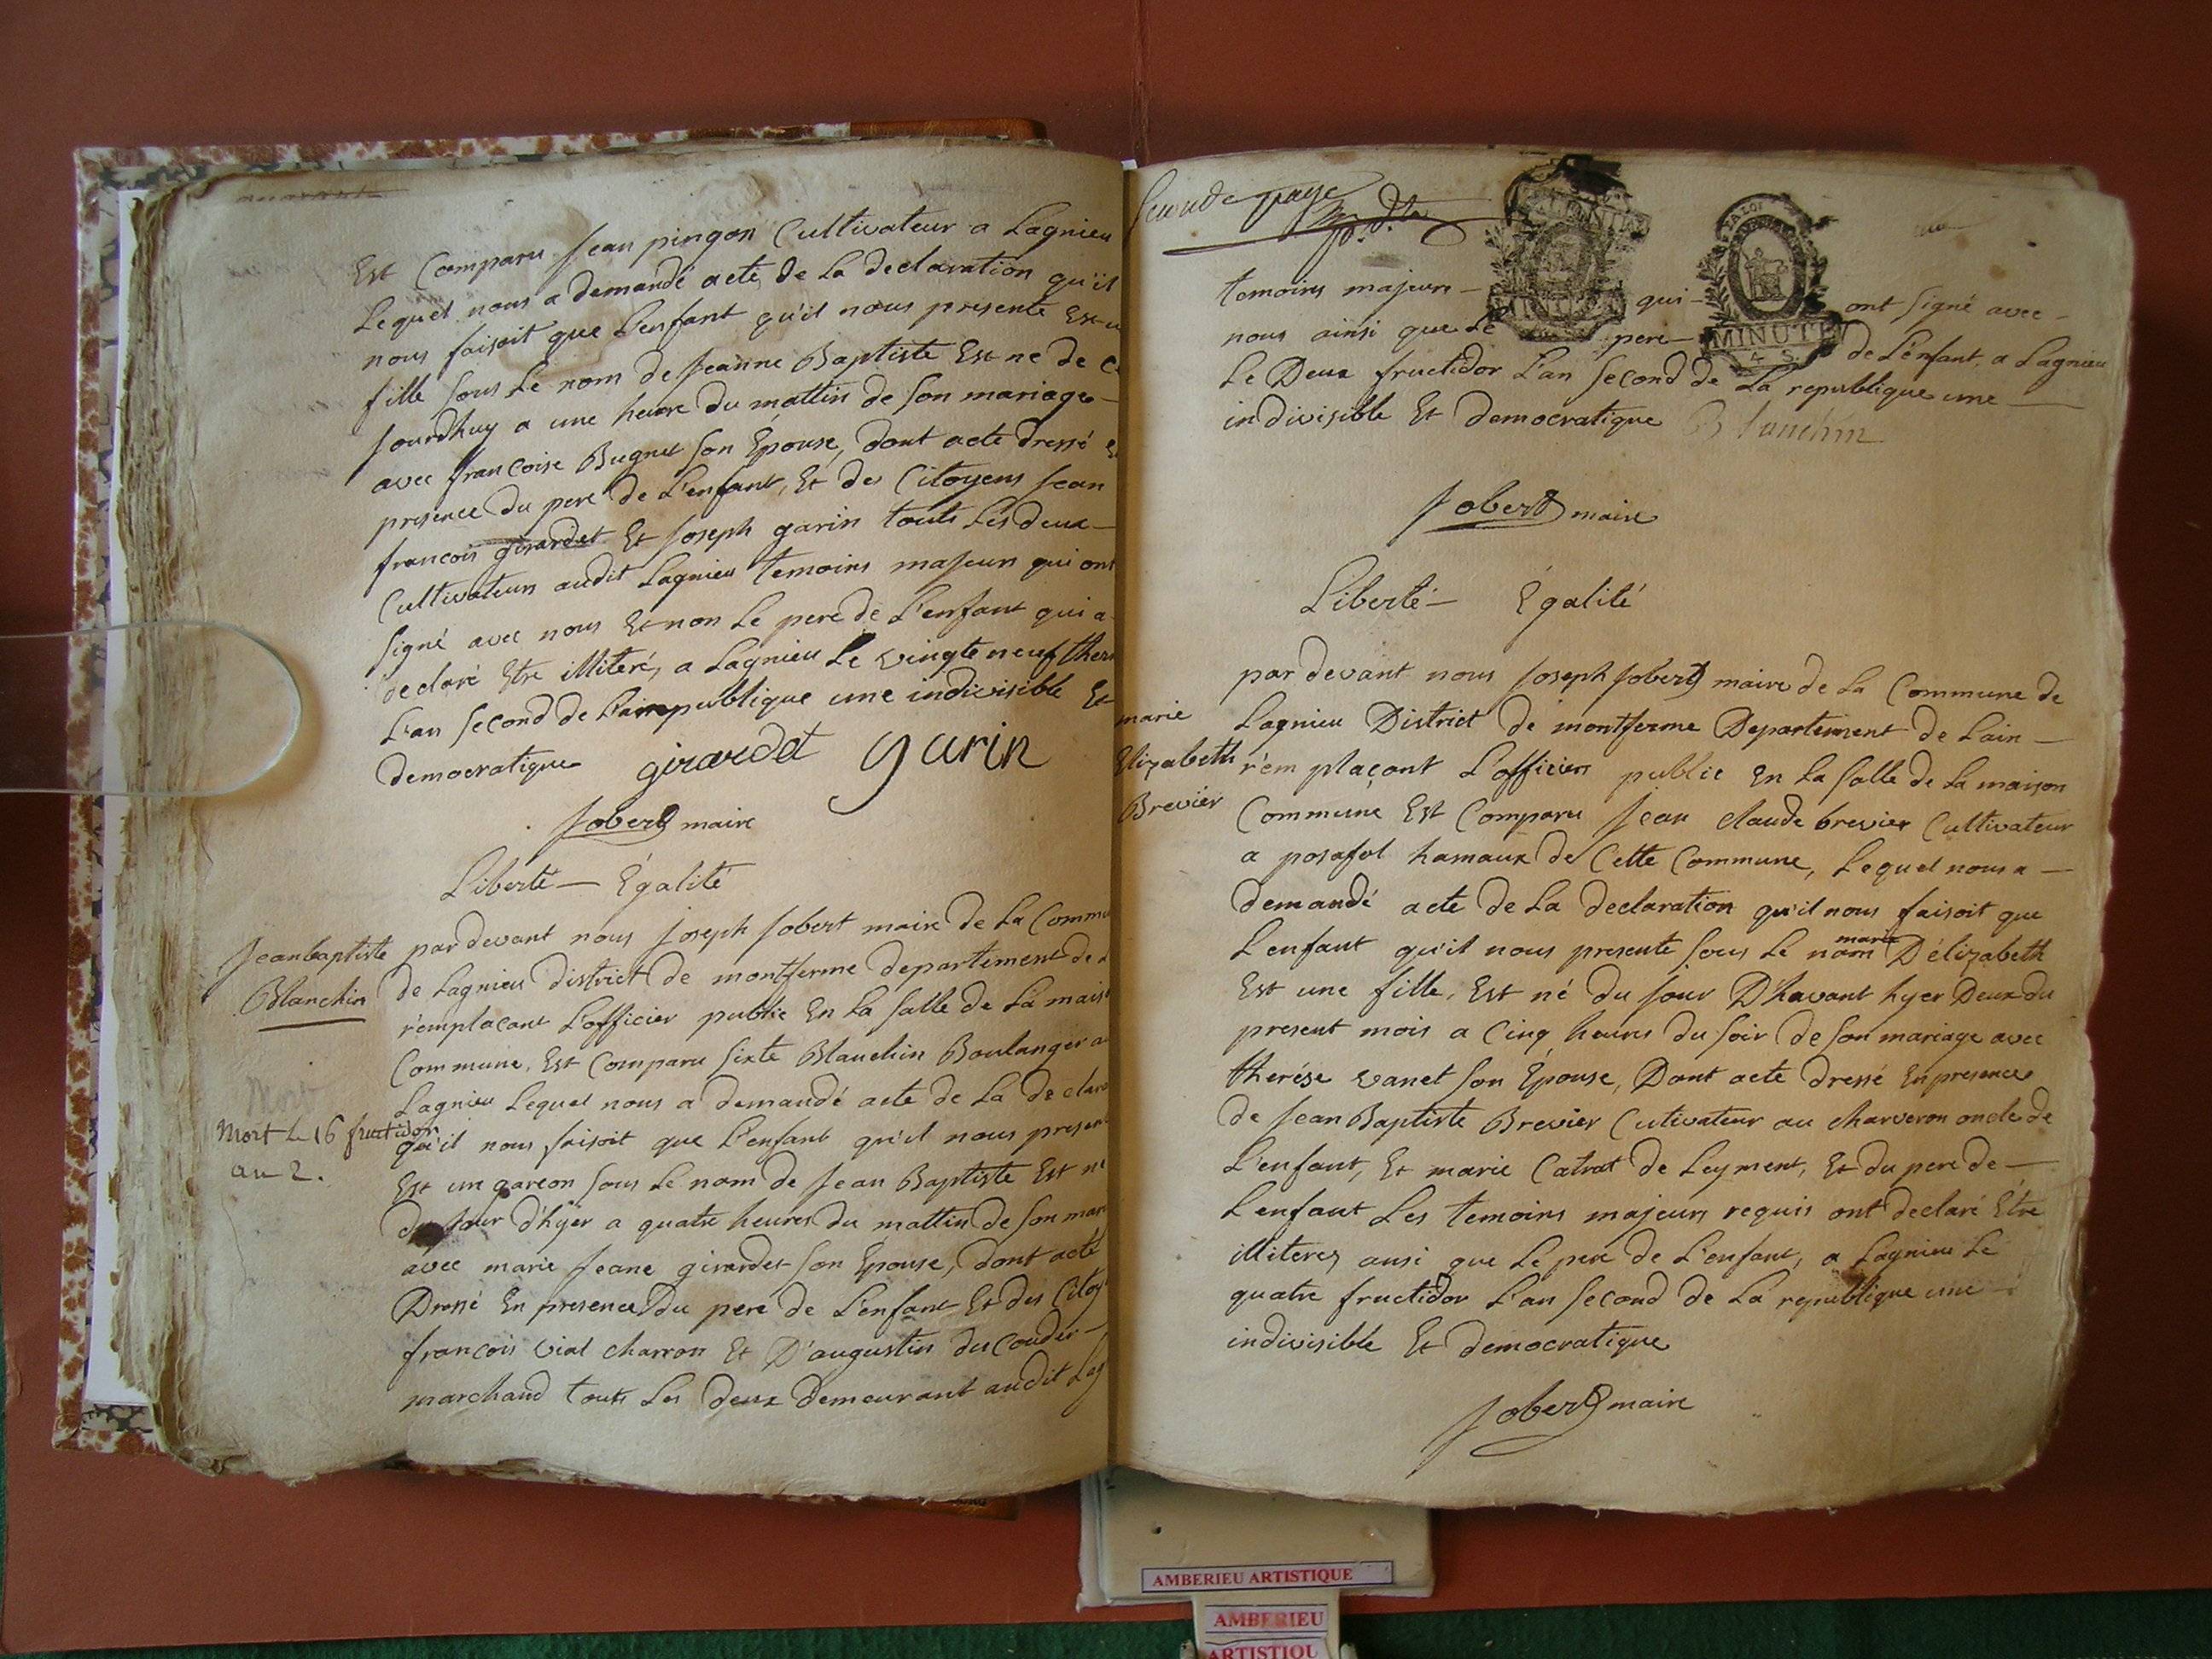 Est Comparu Jean pingon Cultivateur a Lagnieu
Lequel nous a demandé acte de La declaration qu'il
nous faisoit que L'enfant qu'il nous presente Est
fille sous Le nom de Jeanne Baptiste Est ne de
Jourdhuy a une heure du mattin de son mariage
avec francoise Bugnet son Epouse, dont acte dressé
presence du pere de L'enfant, Et des Citoyens Jean
francois girardet Et Joseph garin touts Les deux
Cultivateurs audit Lagnieu temoins majeurs qui ont
signé avec nous Et non Le pere de L'enfant qui a
declaré Etre illiteré, a Lagnieu Le vingte neuf ther
L'an second de La republique une indivisible Et
democratique girardet garin
Jobert maire
Liberté — Egalité
Jean baptiste
Blanchin
par devant nous Joseph Jobert maire de La Commu
de Lagnieu district de montferme departement de
remplacant L'officier public En La salle de La mais
Commune, Est Comparu sixte Blanchin Boulanger a
Lagnieu Lequel nous a demandé acte de La declara
mort le 16 fructidor
an 2.
qu'il nous faisoit que L'enfant qu'il nous present
Est un garcon sous Le nom de Jean Baptiste Est né
du jour d'hyer a quatre heures du mattin de son mari
avec marie Jeane girardet son Epouse, dont acte
Dressé En presence Du pere de L'enfant Et des Citoy
francois vial charron Et D'augustin du Couder
marchand touts Les deux demeurant audit Lag
seconde page
temoins majeurs — qui — ont signé avec —
nous ainsi que Le pere — de L'enfant, a Lagnieu
LA LOI
MINUTE
4 S.
Le Deux fructidor L'an second de La republique une
indivisible Et democratique Blanchin
Jobert maire
Liberté — Egalité
marie
Elizabeth
Brevier
par devant nous Joseph Jobert maire de La Commune de
Lagnieu District de montferme Departement de Lain —
remplaçant L'officier public En La salle de La maison
Commune Est Comparu Jean claude brevier Cultivateur
a posafol hamaux de Cette Commune, Lequel nous a —
demandé acte de La declaration qu'il nous faisoit que
L'enfant qu'il nous presente sous Le nom marie D'élizabeth
Est une fille, Est né du jour D'havant hyer Deux du
present mois a Cinq heures du soir de son mariage avec
thérése vanet son Épouse, Dont acte dressé En presence
de Jean Baptiste Brevier Cutivateur au charveron oncle de
L'enfant, Et marie Catrat de Leyment, Et du pere de —
L'enfant Les temoins majeurs requis ont declaré Etre
illiterez ausi que Le pere de L'enfant, a Lagnieu Le
quatre fructidor L'an second de La republique une
indivisible Et democratique
Jobert maire
AMBERIEU ARTISTIQUE
AMBERIEU
ARTISTIQU